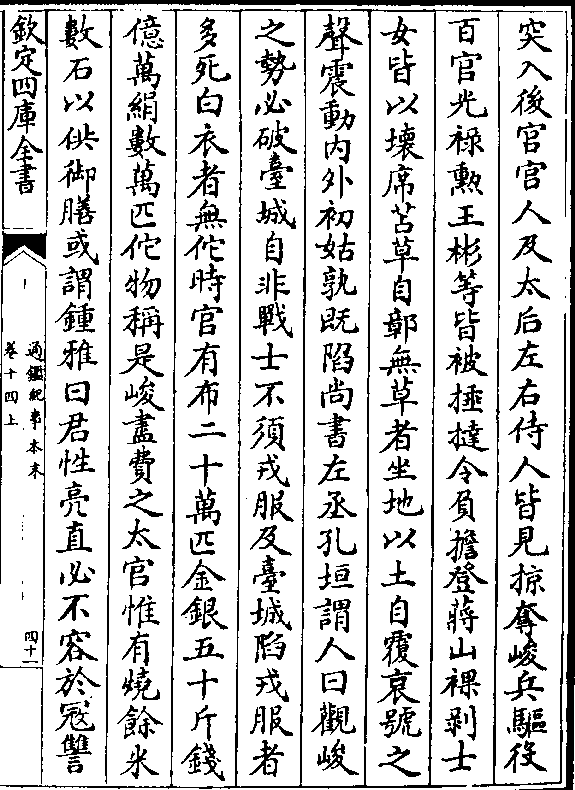 突入後宫宫人及太后左右侍人皆見掠奪峻兵驅役
百官光禄勲王彬等皆被捶撻令負擔登蔣山祼剥士
女皆以壊席苫草自鄣無草者坐地以土自覆哀號之
聲震動内外初姑孰既陷尚書左丞孔坦謂人曰觀峻
之勢必破臺城自非戰士不須戎服及臺城陷戎服者
多死白衣者無佗時官有布二十萬匹金銀五千斤錢
億萬絹數萬匹佗物稱是峻盡費之太官惟有燒餘米
數石以供御膳或謂鍾雅曰君性亮直必不容於冦讐
欽定四庫全書
通鑑紀事本末
卷十四上
四十一